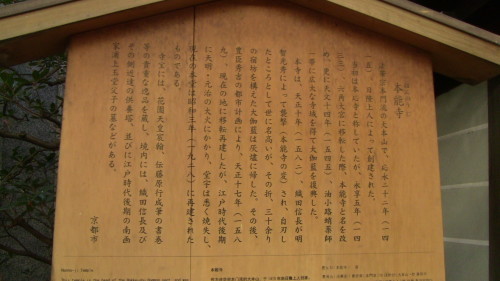 本能寺
法華宗本門流の大本山で、応永二十二年（一四
一五）、日隆上人によって創建された。
当初は本応寺と称していたが、永享五年（一四
三三）、六角大宮に移転した際、本能寺と名を改
め、更に天文十四年（一五四五）、油小路蛸薬師
一帯に広大な寺域を得て大伽藍を復興した。
本寺は、天正十年（一五八二）、織田信長が明
智光秀によって襲撃（本能寺の変）され、自刃し
たところとして世に名高いが、その折、三十余り
の宿坊を構えた大伽藍は灰燼に帰した。その後、
豊臣秀吉の都市計画により、天正十七年（一五八
九）、現在の地に移転再建したが、江戸時代後期
に天明・元治の大火にかかり、堂宇は悉く焼失し、
現在の本堂は昭和三年（一九二八）に再建された
ものである。
寺宝には、花園天皇宸翰、伝藤原行成筆の書巻
等の貴重な逸品を蔵し、境内には、織田信長及び
その側近達の供養塔、並びに江戸時代後期の南画
家浦上玉堂父子の墓などがある。
京都市
Honno-ji Temple
本能寺